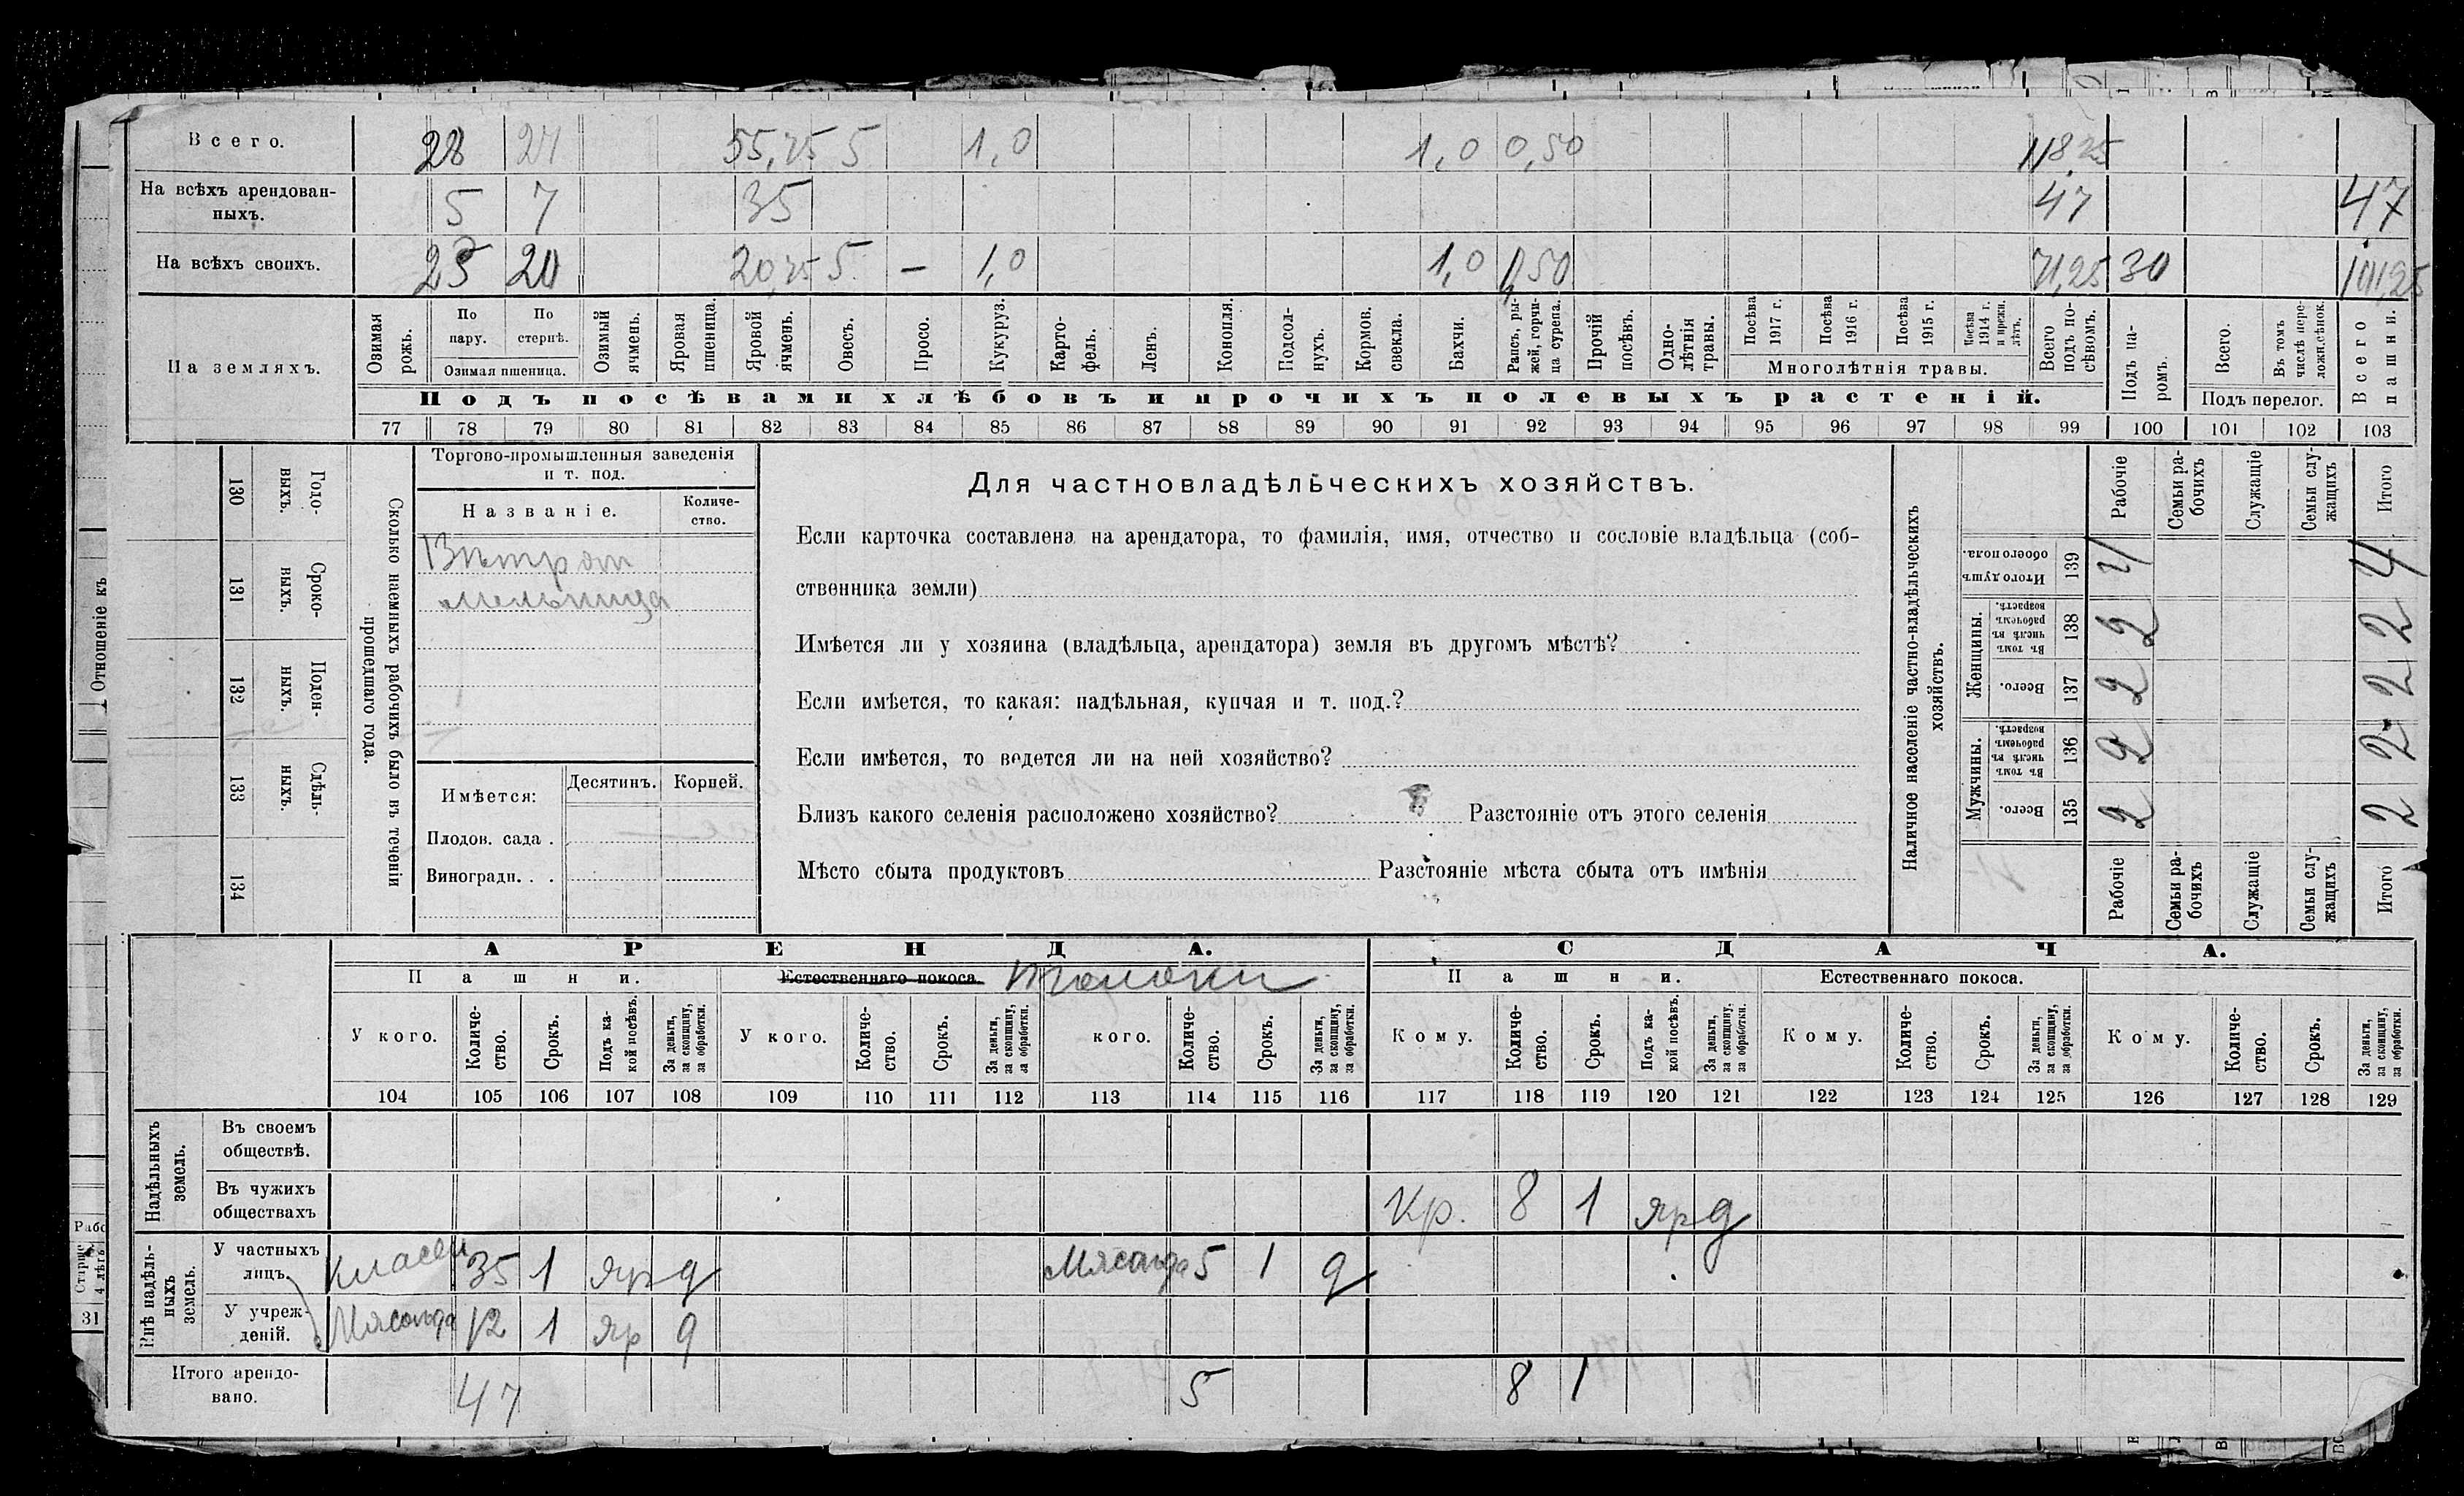 Всего. 28 27 55,25 5 1,0 1,0 0,50 118,25
На всѣхъ арендован-
ныхъ. 5 7 35 47 47
На всѣхъ своихъ. 23 20 20,25 5 — 1,0 1,0 0,50 71,25 30 101,25
На земляхъ.
Озимая рожь.
По пару.
По стернѣ.
Озимая пшеница.
Озимый ячмень.
Яровая пшеница.
Яровой ячмень.
Овесъ.
Просо.
Кукуруз.
Карто-
фель.
Ленъ.
Конопля.
Подсол-
нухъ.
Кормов. свекла.
Бахчи.
Рапсъ, ры-
жей, горчи-
ца сурепа.
Прочій посѣвъ.
Одно-
лѣтнія травы.
Посѣва 1917 г.
Посѣва 1916 г.
Посѣва 1915 г.
Посѣва 1914 г. и прежн. лѣтъ.
Многолѣтнія травы.
Всего подъ по-
сѣвомъ.
Подъ па-
ромъ.
Всего.
Въ томъ числѣ пере-
ложн. сѣнок.
Подъ перелог.
Всего пашни.
Подъ посѣвами хлѣбовъ и прочихъ полевыхъ растеній.
77 78 79 80 81 82 83 84 85 86 87 88 89 90 91 92 93 94 95 96 97 98 99 100 101 102 103
Отношеніе къ
Рабо
Старше
4 лѣтъ
31
130 Годо-
выхъ.
131 Сроко-
выхъ.
132 Поден-
ныхъ.
133 Сдѣль-
ныхъ.
134
Сколько наемныхъ рабочихъ было въ теченіи
прошедшаго года.
Торгово-промышленныя заведенія
и т. под.
Названіе.
Количе-
ство.
Вѣтрян
мельница
Имѣется:
Десятинъ. Корней.
Плодов. сада .
Виноградн. . .
Для частновладѣльческихъ хозяйствъ.
Если карточка составлена на арендатора, то фамилія, имя, отчество и сословіе владѣльца (соб-
ственника земли)
Имѣется ли у хозяина (владѣльца, арендатора) земля въ другомъ мѣстѣ?
Если имѣется, то какая: надѣльная, купчая и т. под.?
Если имѣется, то ведется ли на ней хозяйство?
Близъ какого селенія расположено хозяйство? Разстояніе отъ этого селенія
Мѣсто сбыта продуктовъ Разстояніе мѣста сбыта отъ имѣнія
Наличное населеніе частно-владѣльческихъ
хозяйствъ.
Рабочіе
Семьи ра-
бочихъ
Служащіе
Семьи слу-
жащихъ
Итого
Итого душъ обоего пола. 139 4 4
Женщины.
Въ томъ числѣ въ рабочемъ возрастѣ. 138 2 2
Всего. 137 2 2
Мужчины.
Въ томъ числѣ въ рабочемъ возрастѣ. 136 2 2
Всего. 135 2 2
Рабочіе
Семьи ра-
бочихъ
Служащіе
Семьи слу-
жащихъ
Итого
АРЕНДА. СДАЧА.
Пашни. Естественнаго покоса. толоки Пашни. Естественнаго покоса.
У кого.
Количе-
ство.
Срокъ.
Подъ ка-
кой посѣвъ.
За деньги, за скопщину, за обработки.
У кого.
Количе-
ство.
Срокъ.
За деньги, за скопщину, за обработки.
кого.
Количе-
ство.
Срокъ.
За деньги, за скопщину, за обработки.
Кому.
Количе-
ство.
Срокъ.
Подъ ка-
кой посѣвъ.
За деньги, за скопщину, за обработки.
Кому.
Количе-
ство.
Срокъ.
За деньги, за скопщину, за обработки.
Кому.
Количе-
ство.
Срокъ.
За деньги, за скопщину, за обработки.
104 105 106 107 108 109 110 111 112 113 114 115 116 117 118 119 120 121 122 123 124 125 126 127 128 129
Надѣльныхъ земель.
Въ своемъ
обществѣ.
Въ чужихъ
обществахъ Кр. 8 1 яр д
Внѣ надѣль-
ныхъ земель.
У частныхъ
лицъ 35 1 яр д 5 1 д
У учреж-
деній. 12 1 яр д
Итого арендо-
вано. 47 5 8 1